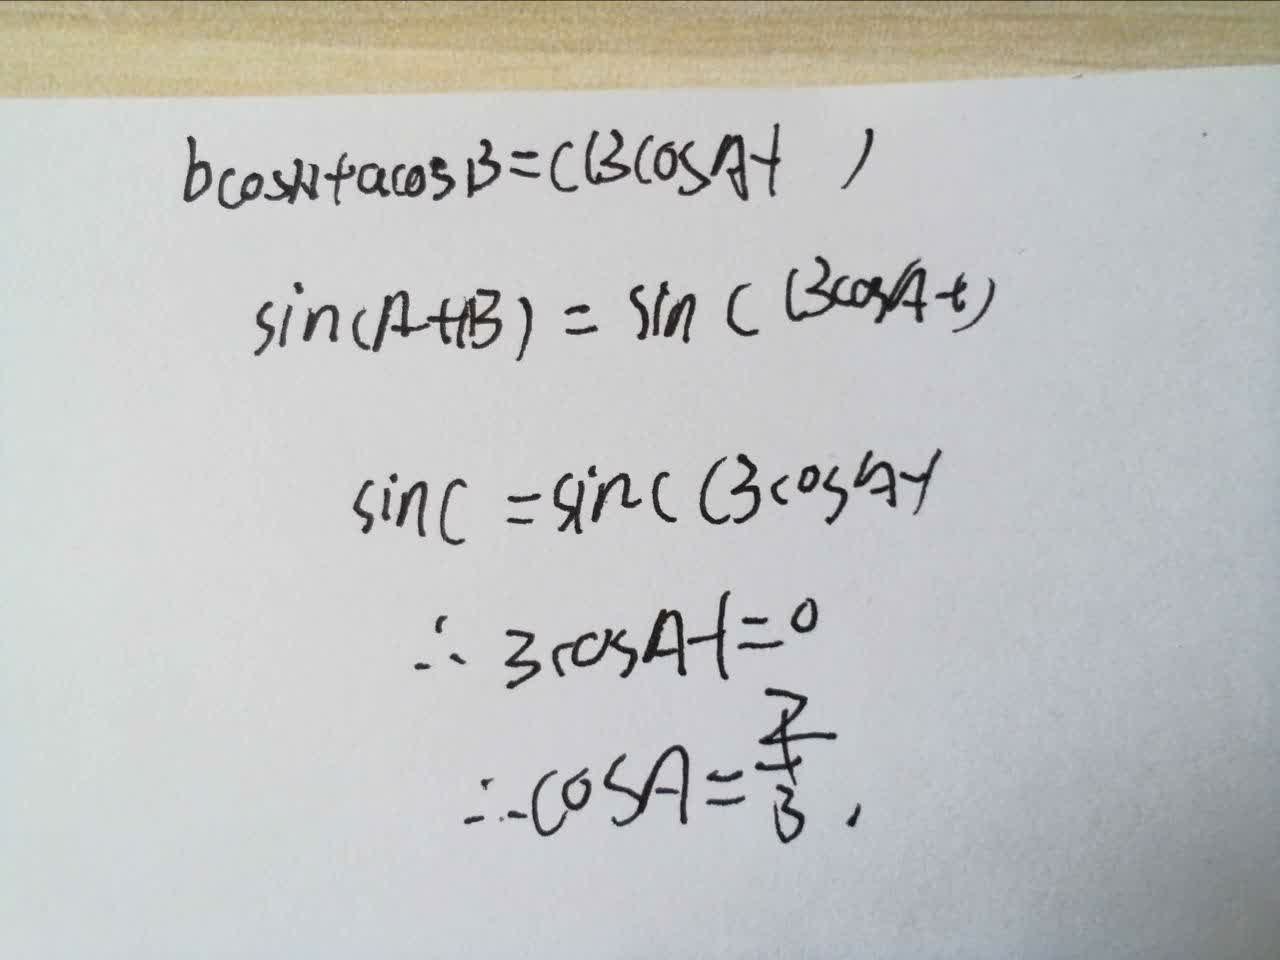 bcosA+acosB=c(3cosA-1 )
sin(A+B) = sin C (3cosA-1)
sinC = sinC (3cosA-1
∴ 3cosA-1=0
∴ cosA=